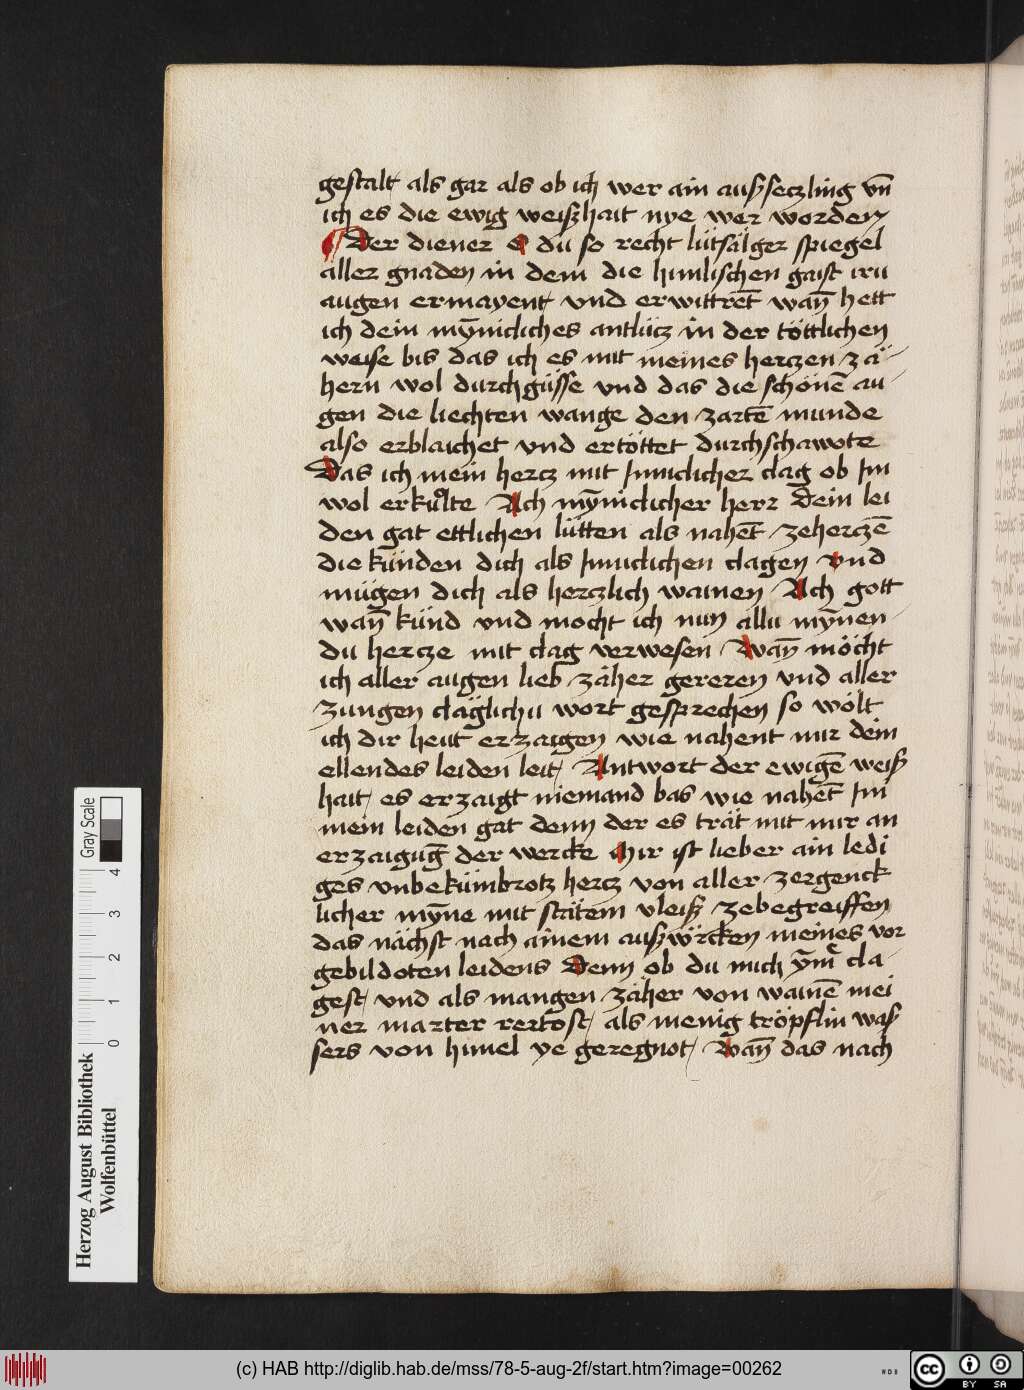 gestalt als gar als ob ich wer ain aussseczling vn̄
ich es die ewig weißhait nye wer worden
Der diener e du so recht lütsälger spiegel
aller gnaden in dem die himlischen gaist iru
augen ermayent vnd erwittret̄ wan̄ hett
ich dein myn̄icliches antlücz in der töttlichen
weise bis das ich es mit meines herczen zä
hern wol durchgüsse vnd das die schönen̄ au
gen die liechten wange den zarten̄ munde
also erblaichet vnd ertöttet durchschawote
Das ich mein hercz mit Innicliher clag ob Im
wol erkuͦlte Ach myn̄iclicher herr Dein lei
den gat ettlichen lütten als nahet̄ zeherczē
die künden dich als Inniclichen clagen vnd
mügen dich als herczlich wainen Ach gott
wan̄ künd vnd mocht ich nun allu myn̄en
du hercze mit clag verwesen Wan̄ möcht
ich aller augen lieb zäher gereren vnd aller
zungen cläglichu wort gesprechen so wölt
ich dir heut erzaigen wie nahent mir dein
ellendes leiden leit Antwort der ewigē weiß
hait es erzaigt niemand bas wie nahet̄ Im
mein leiden gat denn der es trät mit mir an
erzaiguḡ der wercke Mir ist lieber ain ledi
ges vnbekümbrotz hercz von aller zergenck
licher myn̄e mit stätem vleiß zebegreiffen
das nächst nach ainem außwürcken meines vor
gebildoten leidens Denn ob du mich ym̄ cla
gest vnd als mangen zäher von wainē mei
ner marter rertost als menig tröpflin was
sers von himel ye geregnot Wan̄ das nach
Herzog August Bibliothek
Wolfenbüttel
0 1 2 3 4
Gray Scale
(c) HAB http://diglib.hab.de/mss/78-5-aug-2f/start.htm?image=00262
WDB
cc BY SA